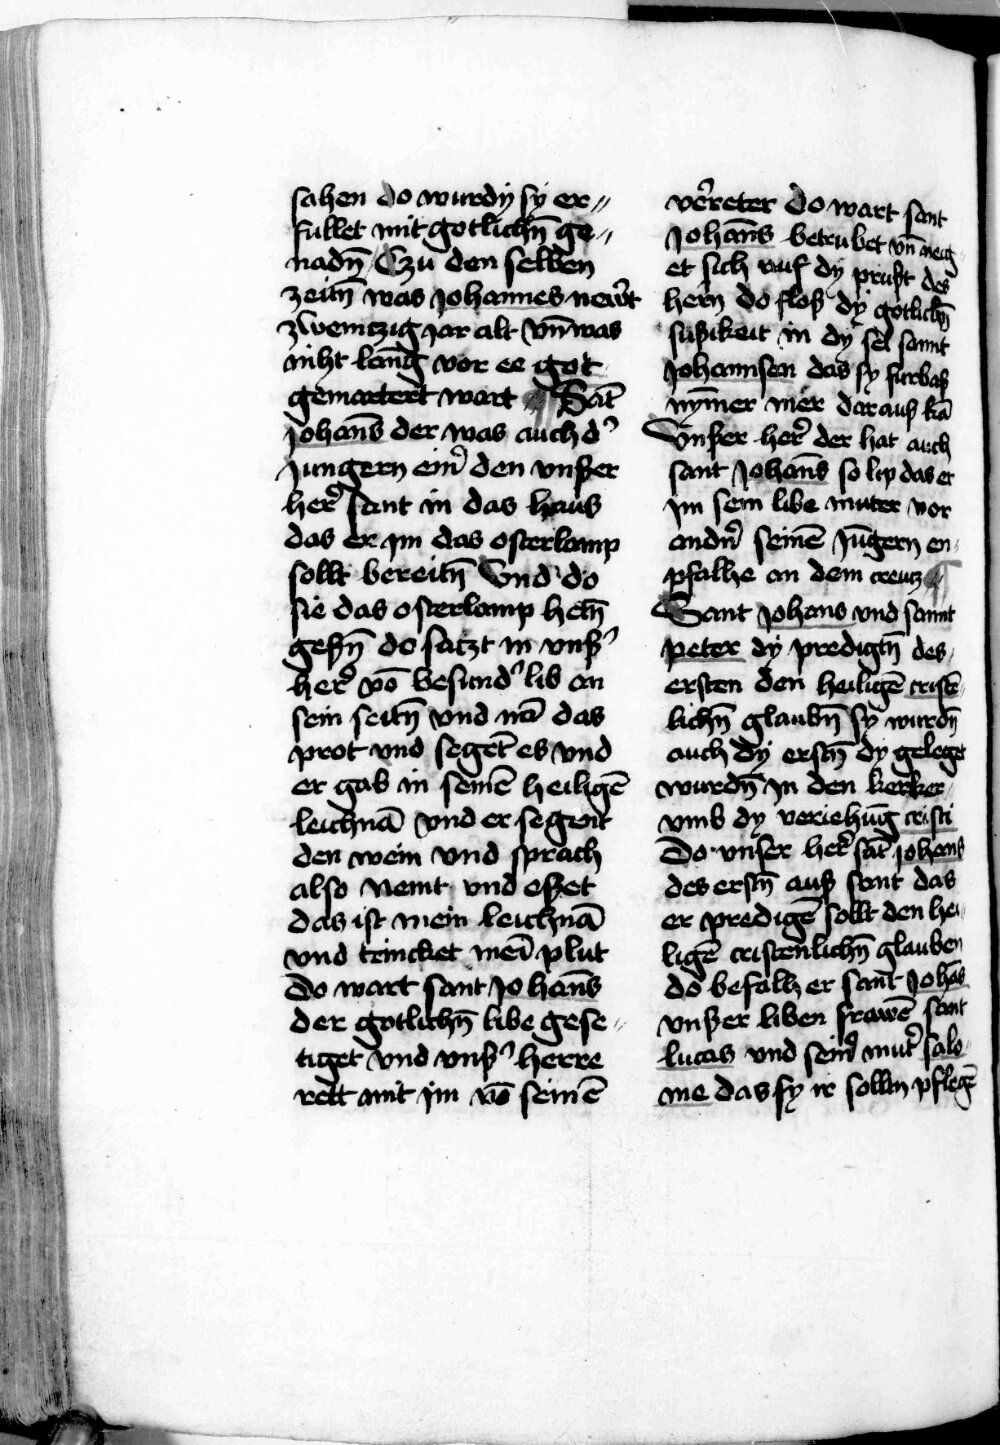 sahen do wurdÿ sÿ er〃
fullet mit gotlichn̄ ge〃
nadn̄ Czu den selben
zeitn̄ was Johannes newt̄
zwentzig Jar alt Vn̄ was
niht lang vor ee got
gemartert wart ¶ Sat̄
Johan̄s der was auch d'
Jungern ein' den vnßer
her' sant in das haus
das er jm das osterlamp
sollt bereitn̄ Vnd do
sie das osterlamp hetn̄
geßn̄ do satzt in vnß'
her' vō besund' lib an
sein seitn̄ vnd nā das
prot vnd seget̄ es vnd
er gab in seinē heiligē
leichnā vnd er segent
den wein vnd sprach
also nemt vnd eßet
das ist mein leichnā
vnd trincket meī plut
Do wart sant Johan̄s
der gotlichn̄ libe gese〃
tiget vnd vnß' herre
rett mit jm vō seinē
v'reter do wart sant
Johan̄s betrubet vn̄ neig
et sich auf dÿ prust des
hern do floß dÿ gotlichn̄
sußikeit in dÿ sel sannt
Johannsen das sy furbaß
nym̄er mer darauß kā
Vnßer her' der hat auch
sant Johan̄s so lip das er
jm sein libe muter vor
andn' seinē Jūgern en〃
pfalhe an dem creutz ¶
Sant Johans vnd sannt
peter dÿ predigtn̄ des
ersten den heiligē cristē
lichn̄ glaubn̄ sÿ wurdn̄
auch dÿ erstn̄ dÿ gelegt
wurdn̄ jn den kerker
vmb dy veriehūg cristi
Do vnser her' sat̄ Johans
des erstn̄ auß sant das
er predigē sollt den hei
ligē cristenlichn̄ glauben
do befalh er sant̄ Johās
vnßer liben frawē sant
lucas vnd sein' mut' salo
me das sy ir solln pflegē